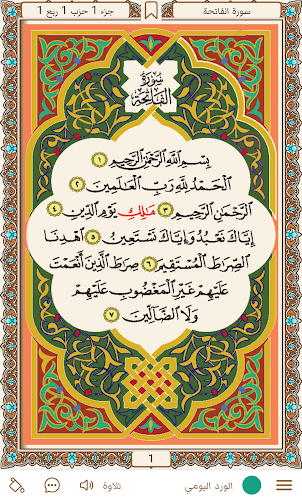 سورة الفاتحة
جزء 1 حزب 1 ربع 1
سُورَةُ
الفَاتِحَةِ
بِسْمِ ٱللَّهِ ٱلرَّحْمَٰنِ ٱلرَّحِيمِ ١
ٱلْحَمْدُ لِلَّهِ رَبِّ ٱلْعَٰلَمِينَ ٢
ٱلرَّحْمَٰنِ ٱلرَّحِيمِ ٣ مَٰلِكِ يَوْمِ ٱلدِّينِ ٤
إِيَّاكَ نَعْبُدُ وَإِيَّاكَ نَسْتَعِينُ ٥ ٱهْدِنَا
ٱلصِّرَٰطَ ٱلْمُسْتَقِيمَ ٦ صِرَٰطَ ٱلَّذِينَ أَنْعَمْتَ
عَلَيْهِمْ غَيْرِ ٱلْمَغْضُوبِ عَلَيْهِمْ
وَلَا ٱلضَّآلِّينَ ٧
1
الورد اليومي
تلاوة